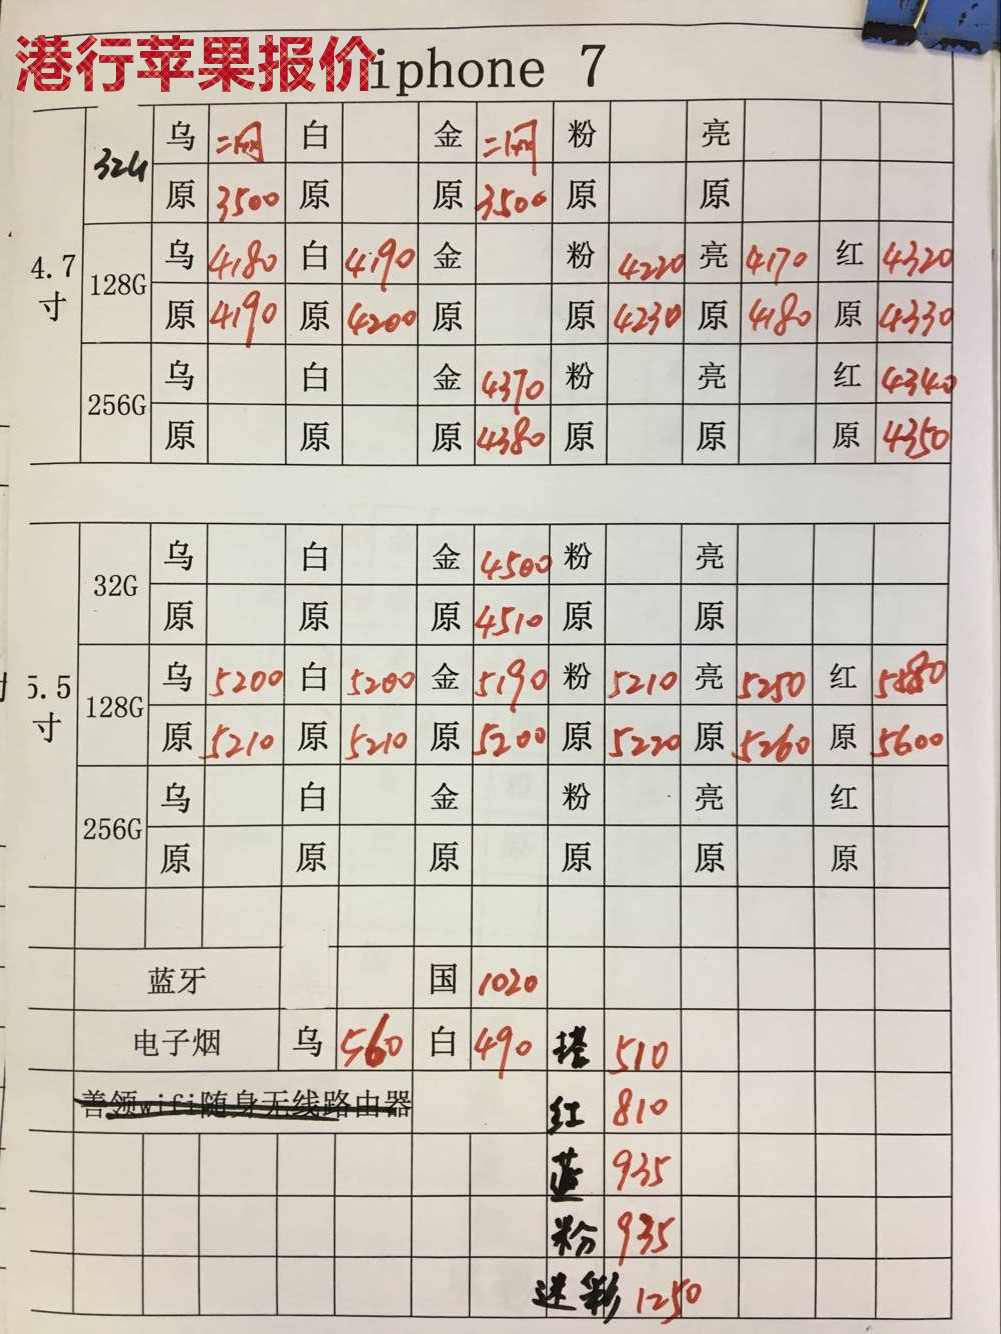 港行苹果报价 iphone 7
4.7寸
32G
乌 二网 白 金 二网 粉 亮
原 3500 原 原 3500 原 原
128G
乌 4180 白 4190 金 粉 4220 亮 4170 红 4320
原 4190 原 4200 原 原 4230 原 4180 原 4330
256G
乌 白 金 4370 粉 亮 红 4340
原 原 原 4380 原 原 原 4350
5.5寸
32G
乌 白 金 4500 粉 亮
原 原 原 4510 原 原
128G
乌 5200 白 5200 金 5190 粉 5210 亮 5250 红
原 5210 原 5210 原 5200 原 5220 原 5260 原 5600
256G
乌 白 金 粉 亮 红
原 原 原 原 原 原
蓝牙 国 1020
电子烟 乌 560 白 490 510
善领wifi随身无线路由器 红 810
蓝 935
粉 935
迷彩 1250